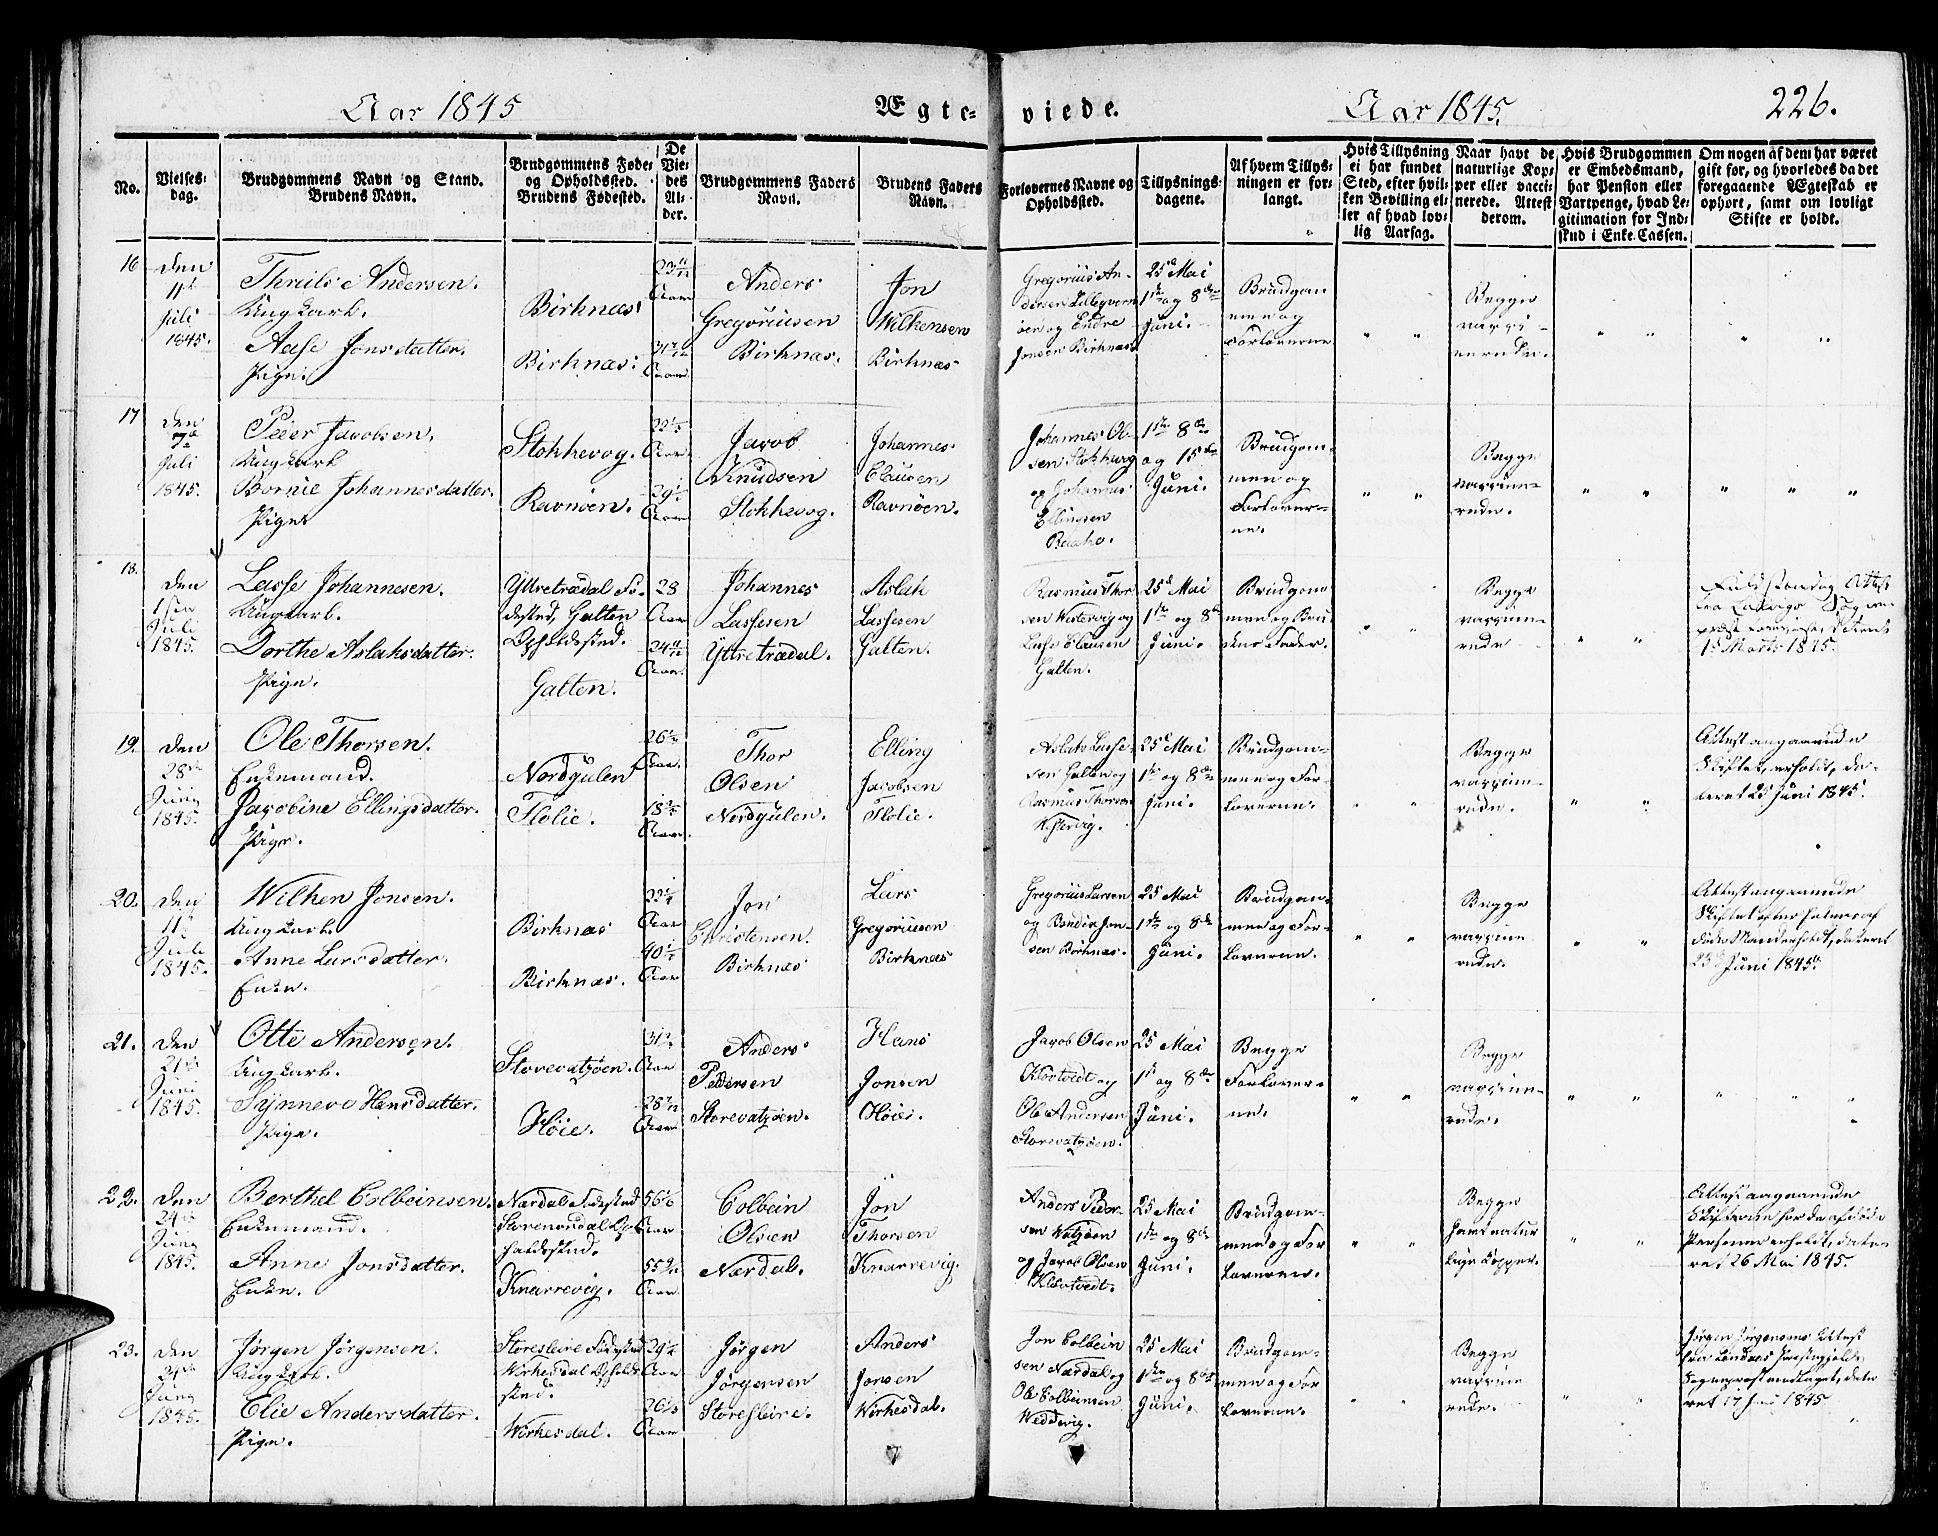 Aar 1845
Ægte-
viede.
Aar 1845.
226.
No.
Vielses-
dag.
Brudgommens Navn og Stand.
Brudens Navn.
Brudgommens Føde-
og Opholdssted.
Brudens Fødested.
De
Vie-
des
Al-
der.
Brudgommens Faders
Navn.
Brudens Faders
Navn.
Forlovernes Navne og
Opholdssted.
Tillysnings-
dagene.
Af hvem Tillys-
ningen er for-
langt.
Hvis Tillysning
ei har fundet
Sted, efter hvil-
ken Bevilling el-
ler af hvad lov-
lig Aarsag.
Naar havt de
naturlige Kop-
per eller vacci-
nerede. Attest
derom.
Hvis Brudgommen
er Embedsmand,
har Pension eller
Vartpenge, hvad Le-
gitimation for Ind-
skud i Enke-Cassen.
Om nogen af dem har været
gift før, og hvorledes da det
foregaaende Ægteskab er
ophørt, samt om lovligt
Skifte er holdt.
16
den
11te
Juli
1845.
Andersen.
Ungkarl.
Aase Jonsdatter.
Pige.
Birknæs
Birknæs.
23 11/12
Aar
31
Aar
Anders
Gregoriusen
Birknæs.
Jon
Wilkensen
Birknæs
Gregorius An-
dersen
og Endre
Jonsen Birknæs
25de Mai
1ste og 8de
Juni.
Brudgom
men og
Forloverne
Begge
vacci-
nerede.
" " " "
17
den
7de
Juli
1845.
Peer Jacobsen.
Ungkarl
Johannesdatter.
Pige
Stokkevog.
Ravnøen.
Aar.
29
Aar
Jacob
Knudsen
Stokkevog.
Johannes
Clausen
Ravnøen.
Johannes Ol-
sen Stokkevog
og Johannes
Ellingsen
1ste 8de
og 15de
Juni.
Brudgom-
men og
Forlover-
ne.
Begge
vaccine-
rede.
" " " " " " "
18.
den
1sten
Juli
1845.
Lasse Johannesen.
Ungkarl.
Dorthe Aslaksdatter.
Pige.
Yttretrædal Fø-
dested, Galten
Opholdssted.
Galten.
28
Aar
24 11/12
Aar.
Johannes
Lassesen
Yttretrædal.
Aslak
Lassesen
Galten.
Rasmus Thor
sen Westervig og
Lasse Clausen
Galten.
25de Mai
1ste og 8de
Juni.
Brudgom
men og Bru
dens Fader.
Begge
vaccine-
rede
" " " "
Attest
fra
præst
Marts 1845.
19.
den
28de
Juni
1845.
Ole Thorsen.
Enkemand.
Jacobine Ellingsdatter.
Pige.
Nordgulen
Flolie.
26
Aar.
18
Aar.
Thor
Olsen
Nordgulen.
Elling
Jacobsen
Flolie.
Aslak Lasse-
sen Galten og
Rasmus Thorsen
Westervig.
25de Mai
1ste og 8de
Juni.
Brudgom-
men og For-
loverne.
Begge
vaccine-
rede.
" " " "
Attest angaaende
Skiftet, erholdt, da-
teret 25 Juni 1845.
20.
den
11te
Juli
1845.
Wilken Jonsen.
Ungkarl.
Anne Larsdatter.
Enke.
Birknæs
Birknæs.
Aar
40
Aar
Jon
Christensen.
Birknæs
Lars
Gregoriusen
Birknæs
Gregorius Larsen
og Jon-
sen Birknæs.
25 Mai
1ste og 8de
Juni.
Brudgom-
men og For-
loverne.
Begge
vaccine
rede.
" " " "
Attest angaaende
Skiftet efter hendes af
døde Mand erholdt, dateret
23de Juni 1845.
21.
den
21de
Juni
1845.
Otte Andersen.
Ungkarl.
Synneve Hansdatter.
Pige.
Storevatzøen.
Høie.
31
Aar
28
Aar
Anders
Pedersen
Storevatzøen.
Hans
Jonsen
Høie.
Jacob Olsen
Klovtvedt og
Ole Andersen
Storevatzøen.
25 Mai
1ste og 8de
Juni.
Begge
Forlover-
ne.
Begge
vaccine-
rede.
" " " " " " "
22.
den
24de
Juni
1845.
Berthel Colbeinsen.
Enkemand.
Anne Jonsdatter.
Enke.
Nærdal Fødested
Op-
holdssted.
Knarrevig.
56
Aar
55
Aar
Colbein
Olsen
Nærdal.
Jon
Thorsen
Knarrevig.
Anders Peder-
sen Watzøen
og Jacob Olsen
Klovtvedt.
25 Mai
1ste og 8de
Juni.
Brudgom-
men og For
loverne.
Begge
havt natur
lige Kopper.
" " " "
Attest angaaende
Skifterne for de afdøde
Personer erholdt, date-
ret 26 Mai 1845.
23.
den
24de
Juni
1845.
Jørgen Jørgensen.
Ungkarl.
Elie Andersdatter.
Pige.
Storesleire Fødested
Wirkesdal Opholds
sted.
Wirkesdal.
29
Aar
26
Aar
Jørgen
Jørgensen
Storesleire.
Anders
Jonsen
Wirkesdal.
Jon Colbein
sen Nærdal og
Ole Colbeinsen
Weddevig.
25 Mai
1ste og 8de
Juni.
Brudgom-
men og For
loverne.
Begge
vaccine
rede.
" " " "
Jørgen Jørgensens Attest
fra Lindaas Præstegjeld,
date
ret 17 Juni 1845